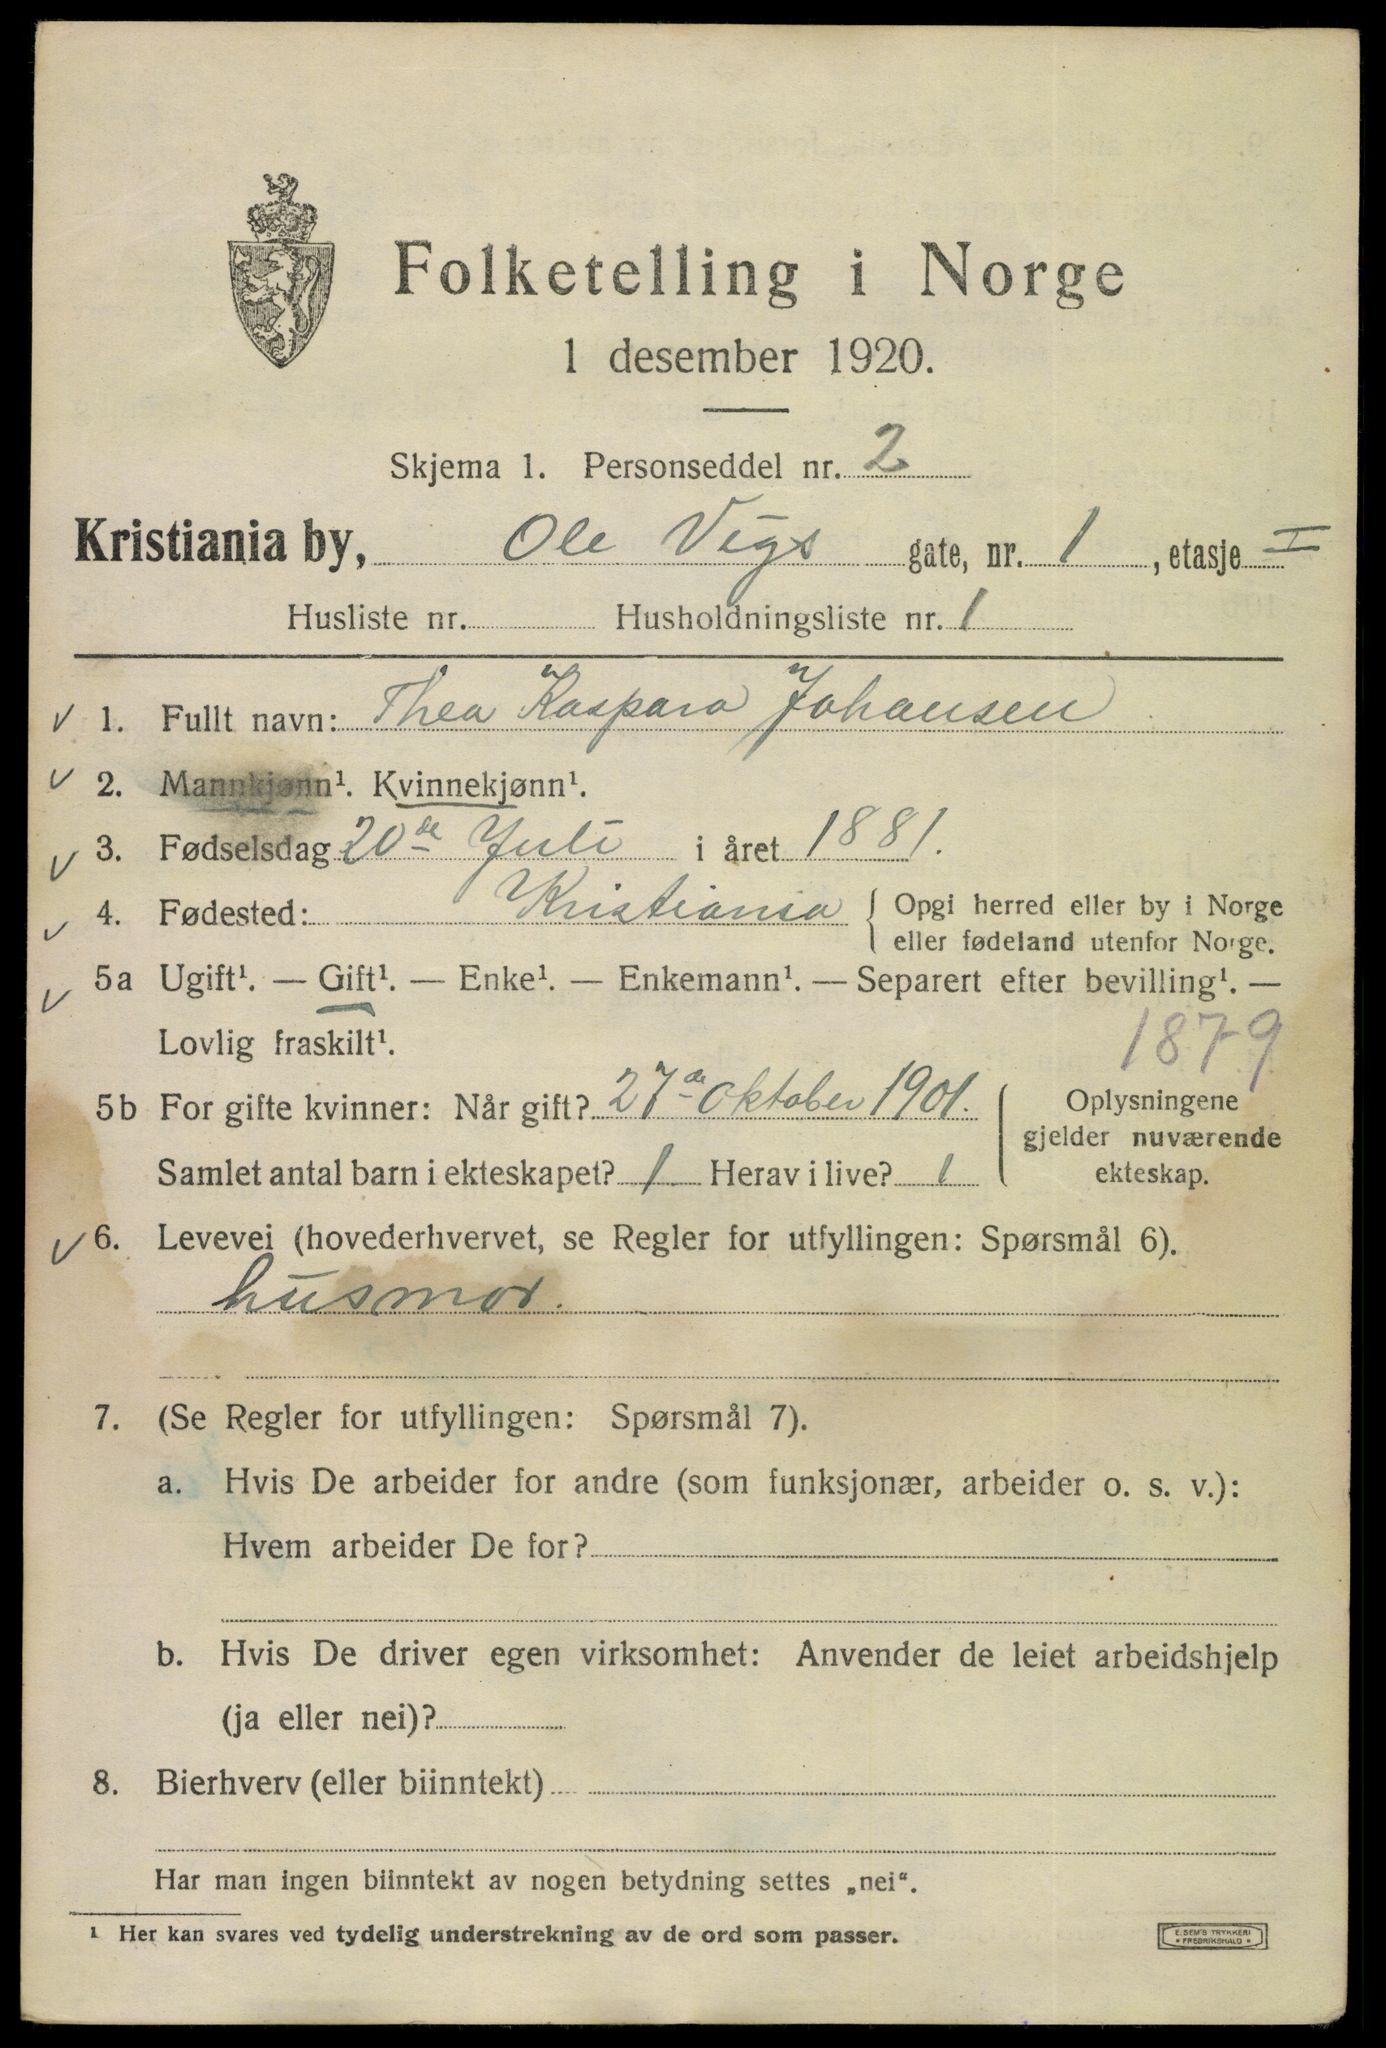 Folketelling i Norge
1 desember 1920.
Skjema 1. Personseddel nr. 2
Kristiania by, Ole Vigs gate, nr. 1, etasje I
Husliste nr. Husholdningsliste nr. 1
1. Fullt navn: Thea Kaspara Johansen
2. Mannkjønn¹. Kvinnekjønn¹.
3. Fødselsdag 20de Juli i året 1881.
4. Fødested: Kristiania { Opgi herred eller by i Norge
eller fødeland utenfor Norge.
5a Ugift¹. — Gift¹. — Enke¹. — Enkemann¹. — Separert efter bevilling¹. —
Lovlig fraskilt¹.
1879
5b For gifte kvinner: Når gift? 27de oktober 1901. { Oplysningene
gjelder nuværende
Samlet antal barn i ekteskapet? 1 Herav i live? 1 ekteskap.
6. Levevei (hovederhvervet, se Regler for utfyllingen: Spørsmål 6).
husmor.
7. (Se Regler for utfyllingen: Spørsmål 7).
a. Hvis De arbeider for andre (som funksjonær, arbeider o. s. v.):
Hvem arbeider De for?
b. Hvis De driver egen virksomhet: Anvender de leiet arbeidshjelp
(ja eller nei)?
8. Bierhverv (eller biinntekt)
Har man ingen biinntekt av nogen betydning settes „nei“.
¹ Her kan svares ved tydelig understrekning av de ord som passer.
E. SEM'S TRYKKERI
• FREDRIKSHALD •